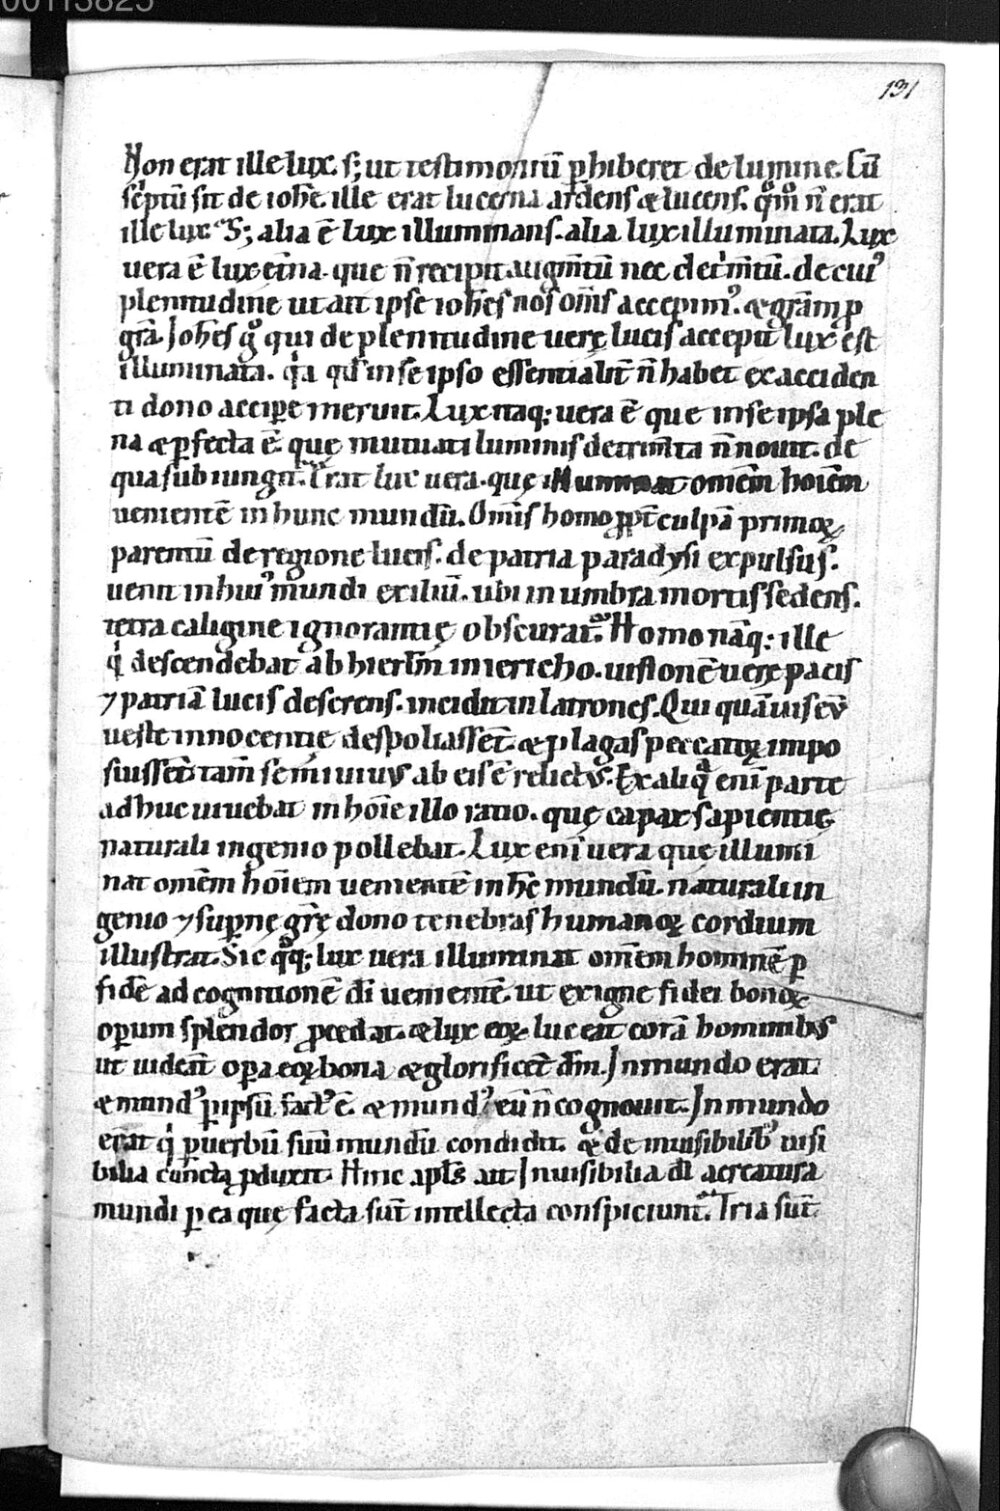 00113825
131
Non erat ille lux. s; ut testimoniū ꝑhiberet de lumine. Cū
sc̍ptū sit de ioh̄e ille erat lucerna ardens & lucens. qͦmͦ n̄ erat
ille lux? S; alia ē lux illuminans. alia lux illuminata. Lux
uera ē lux et̄na. que n̄ recipit augm̄tū nec dec̍m̄tū. de cuiꝰ
plenitudine ut ait ipse ioh̄es nos om̄s accepimꝰ. & grām ꝓ
gr̄a. Joh̄es gͦ qui de plenitudine uerę lucis accepit lux est
illuminata. q̍a qd̄ in se ipso essentialit̄ n̄ habet ex acciden
ti dono accipe meruit. Lux itaq; uera ē que in se ipsa ple
na & ꝑfecta ē. quę mutuati luminis detrim̄ta n̄ nouit. de
qua subiungit. Erat lux uera. quę illuminat omēm hoīem
uenientē in hunc mundū. Om̄is homo ꝓpt̄ culpā primoꝝ
parentū de regione lucis. de patria paradysi expulsus.
uenit in huiꝰ mundi exiliū. ubi in umbra mortis sedens.
tętra caligine ignorantię obscurat̄. Homo nāq; ille
q̍ descendebat ab hierłm in iericho. uisionē uerę pacis
⁊ patriā lucis deserens. incidit in latrones. Qui quāuis eū
ueste innocentię despoliassēt. & plagas peccatoꝝ impo
suissēt tam̄ semiuiuꝰ ab eis ē relictꝰ. Ex aliqͣ enī parte
adhuc uiuebat in hoīe illo ratio. quę capax sapientię
naturali ingenio pollebat. Lux enī uera quę illumi
nat omēm hoīem uenientē in hc̄ mundū. naturali in
genio ⁊ supnę gr̄ę dono tenebras humanoꝝ cordium
illustrat. Sic qͦq; lux uera illuminat omēm hominē ꝑ
fidē ad cognitionē dī uenientē. ut ex igne fidei bonoꝝ
oꝑum splendor ꝓcedat. & lux eoꝝ luceat corā hominibꝰ
ut uideāt oꝑa eoꝝ bona & glorificēt dm̄. In mundo erat.
& mundꝰ ꝑ ipsū factꝰ ē. & mundꝰ eū n̄ cognouit. In mundo
erat q̍ ꝑ uerbū suū mundū condidit. & de inuisibilibꝰ uisi
bilia cuncta ꝓduxit. Hinc apłs ait. Inuisibilia dī a creatura
mundi ꝑ ea quę facta sūt intellecta conspiciunt̄. Tria sūt